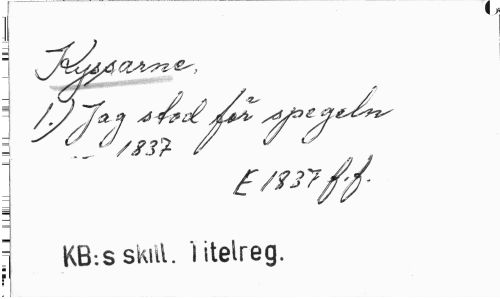 Kyssarne.
1.) Jag stod för spegeln
... 1837
E 1837 f.f.
KB:s skill. Titelreg.